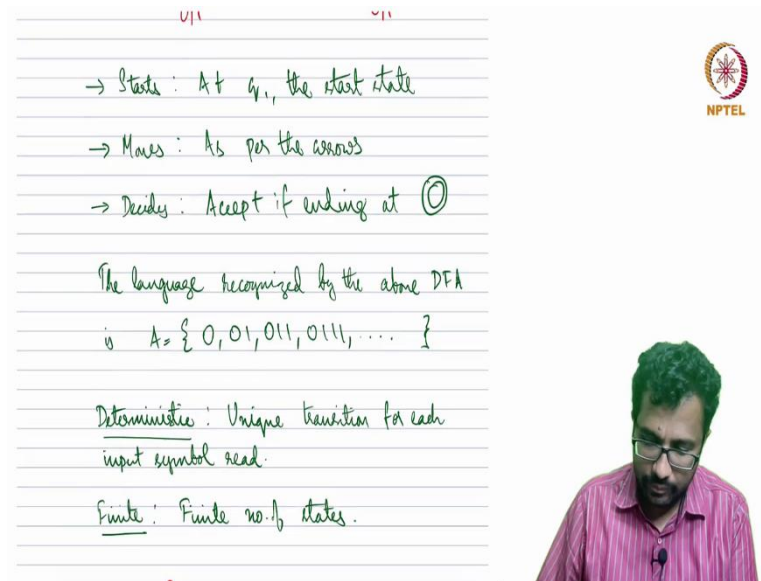 0/1 0/1
→ Starts : At q₁, the start state
→ Moves : As per the arrows
→ Decides : Accept if ending at
The language recognized by the above DFA
is A = { 0, 01, 011, 0111, .... }
Deterministic : Unique transition for each
input symbol read.
Finite : Finite no. of states.
NPTEL